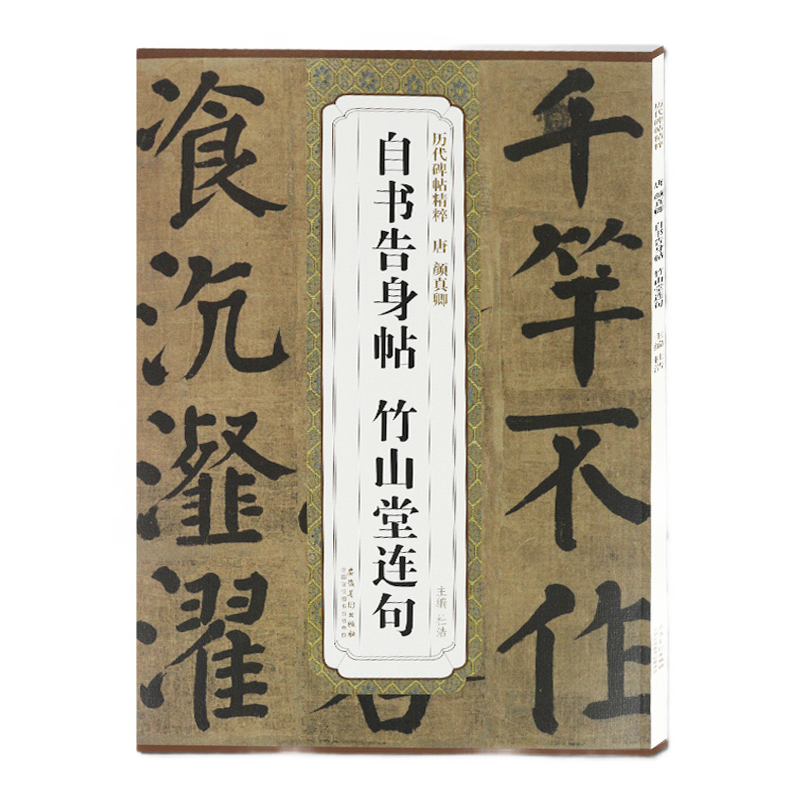 千竿不作
历代碑帖精粹 唐 颜真卿
自书告身帖 竹山堂连句
主编 杜浩
安徽美术出版社
飡沆瀣濯
历代碑帖精粹 唐 颜真卿 自书告身帖 竹山堂连句 主编 杜浩